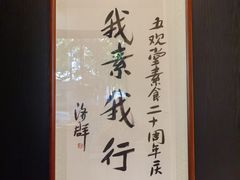 五观堂素食二十周年庆
我素我行
海群